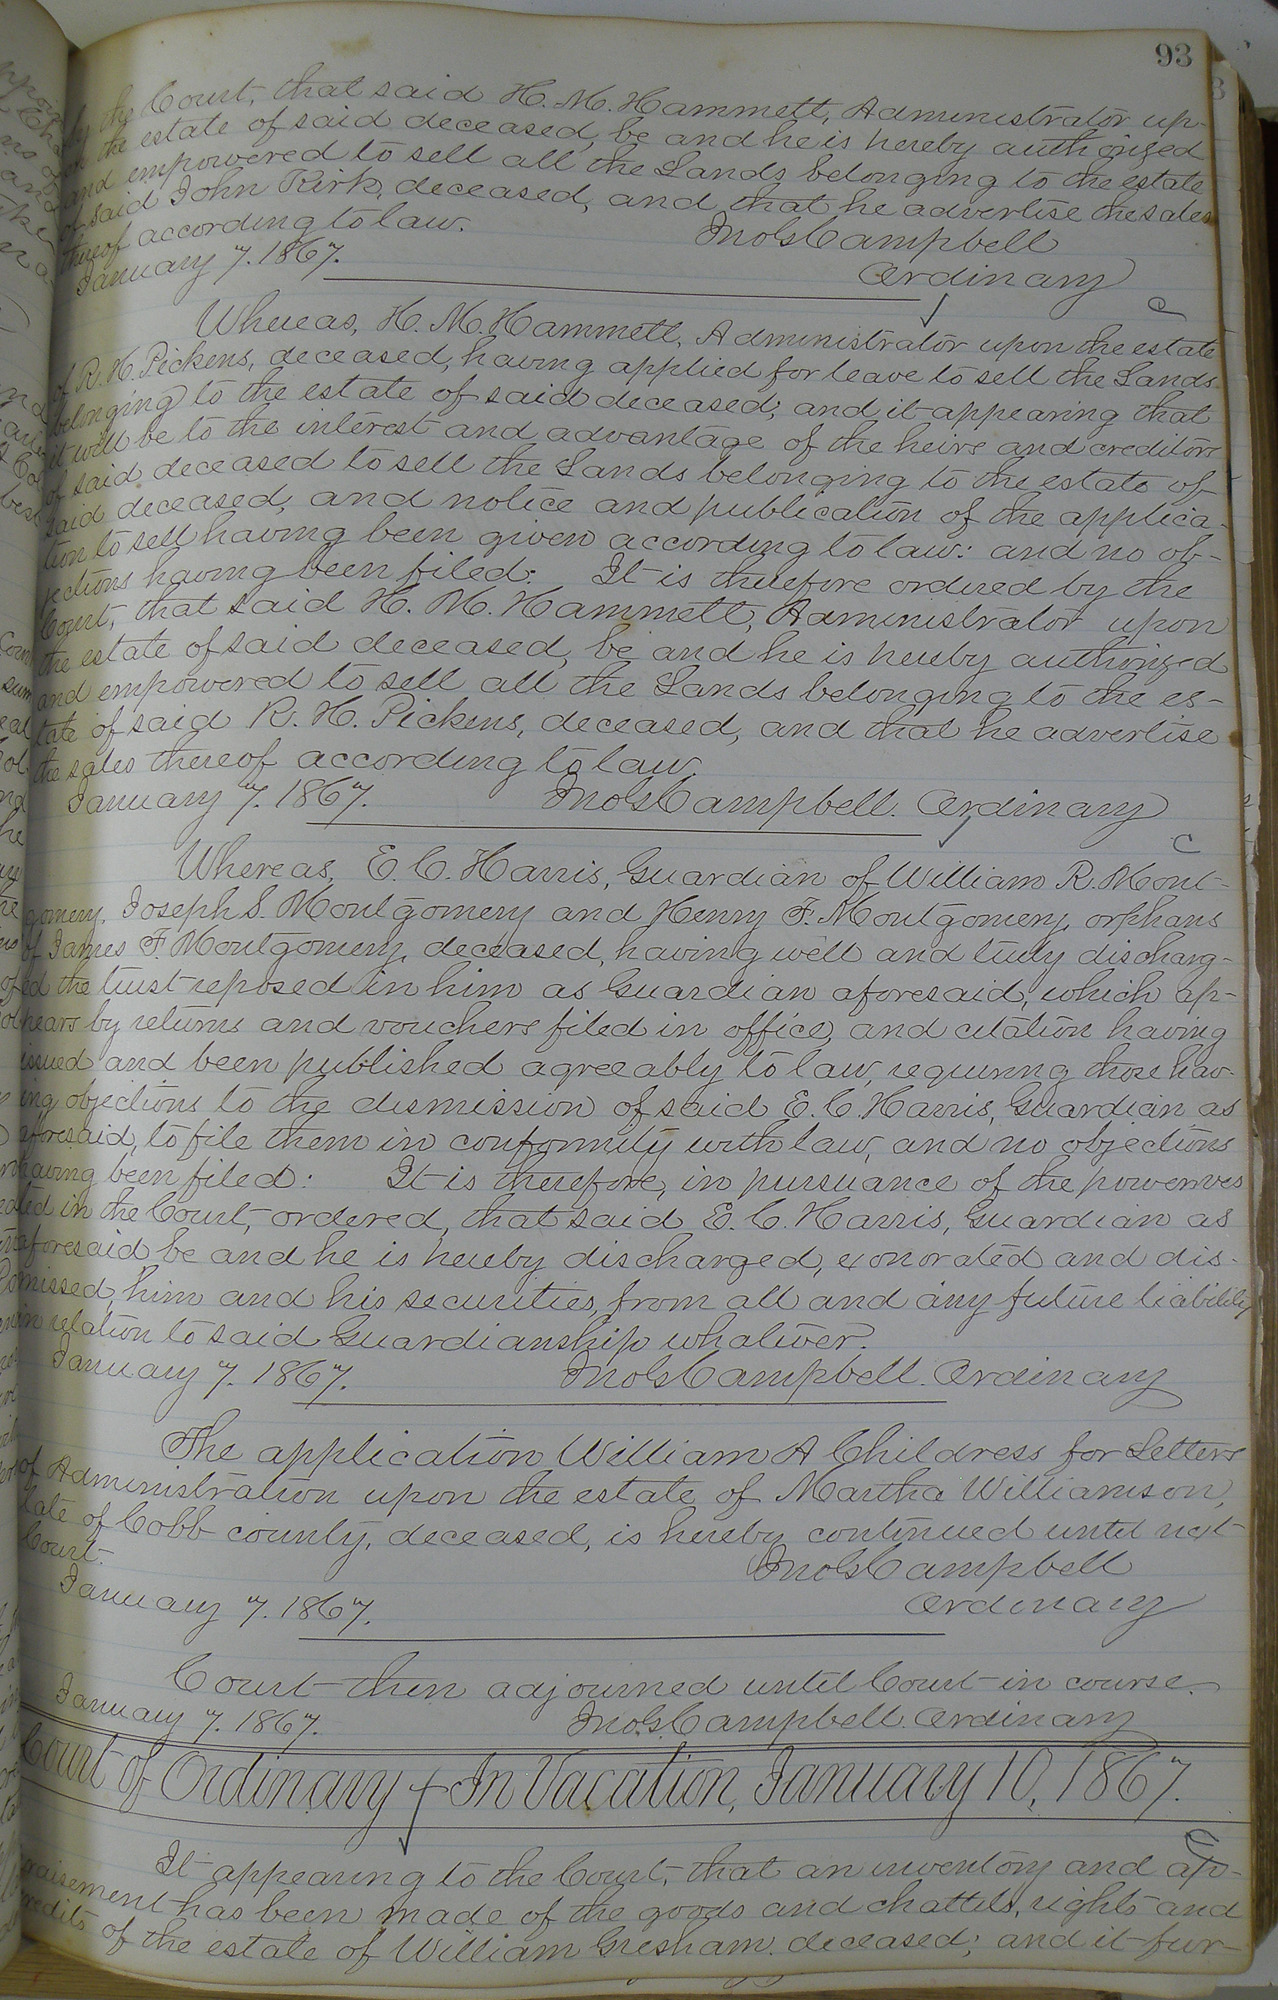 93
by the Court, that said H. M. Hammett, Administrator up-
on the estate of said deceased, be and he is hereby authorized
and empowered to sell all the Lands belonging to the estate
of said John Kirk, deceased, and that he advertise the sales
thereof according to law.
Jno G Campbell
January 7. 1867.
Ordinary
Whereas, H. M. Hammett, Administrator upon the estate
of R. H. Pickens, deceased, having applied for leave to sell the Lands
belonging to the estate of said deceased, and it appearing that
it will be to the interest and advantage of the heirs and creditors
of said deceased to sell the Lands belonging to the estate of
said deceased, and notice and publication of the applica-
tion to sell having been given according to law: and no ob-
jections having been filed: It is therefore ordered by the
Court, that said H. M. Hammett, Administrator upon
the estate of said deceased, be and he is hereby authorized
and empowered to sell all the Lands belonging to the es-
tate of said R. H. Pickens, deceased, and that he advertise
the sales thereof according to law.
January 7. 1867. Jno G Campbell. Ordinary
Whereas, E. C. Harris, Guardian of William R. Mont-
gomery, Joseph S. Montgomery and Henry F. Montgomery, orphans
of James F. Montgomery, deceased, having well and truly discharg-
ed the trust reposed in him as Guardian aforesaid, which ap-
pears by returns and vouchers filed in office, and citation having
issued and been published agreeably to law, requiring those hav-
ing objections to the dismission of said E. C. Harris, Guardian as
aforesaid, to file them in conformity with law, and no objections
having been filed: It is therefore, in pursuance of the power ves
ted in the Court, ordered, that said E. C. Harris, Guardian as
aforesaid be and he is hereby discharged, exonorated and dis-
missed, him and his securities, from all and any future liability
in relation to said Guardianship whatever.
January 7. 1867. Jno G Campbell. Ordinary
The application William A Childress for Letters
of Administration upon the estate of Martha Williamson,
late of Cobb county, deceased, is hereby continued until next
Court.
Jno G Campbell
January 7. 1867.
Ordinary
Court then adjourned until Court in course.
January 7. 1867. Jno G Campbell. Ordinary
Court of Ordinary In Vacation, January 10, 1867.
It appearing to the Court, that an inventory and ap-
praisement has been made of the goods and chattels, rights and
credits of the estate of William Gresham, deceased; and it fur-